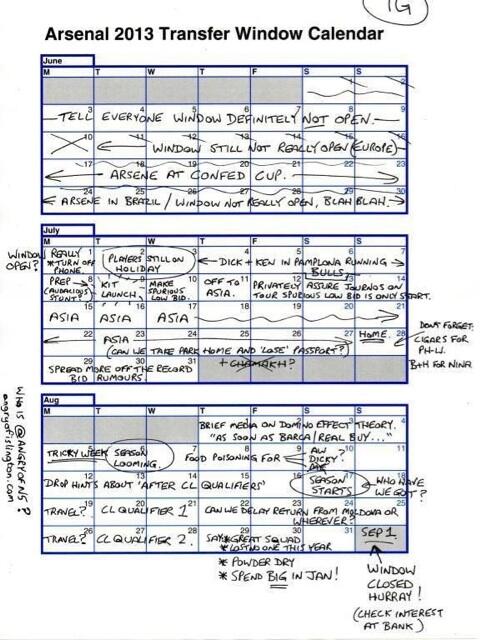 1G
Arsenal 2013 Transfer Window Calendar
June
M T W T F S S
1 2
3 4 5 6 7 8 9
TELL EVERYONE WINDOW DEFINITELY NOT OPEN.
10 11 12 13 14 15 16
WINDOW STILL NOT REALLY OPEN (EUROPE)
17 18 19 20 21 22 23
ARSENE AT CONFED CUP.
24 25 26 27 28 29 30
ARSENE IN BRAZIL / WINDOW NOT REALLY OPEN, BLAH BLAH.
July
M T W T F S S
WINDOW REALLY OPEN?
1 2 3 4 5 6 7
* TURN OFF PHONE.
PLAYERS STILL ON HOLIDAY
DICK + KEN IN PAMPLONA RUNNING BULLS
8 9 10 11 12 13 14
PREP (AUDACIOUS STUNT?)
KIT LAUNCH.
MAKE SPURIOUS LOW BID.
OFF TO ASIA.
PRIVATELY ASSURE JOURNOS ON TOUR SPURIOUS LOW BID IS ONLY START.
15 16 17 18 19 20 21
ASIA ASIA ASIA
22 23 24 25 26 27 28
ASIA
(CAN WE TAKE PARK HOME AND 'LOSE' PASSPORT?)
+ CHAMAKH?
HOME.
DON'T FORGET:
CIGARS FOR
PH-W.
B+H FOR NINA
29 30 31
SPREAD MORE OFF THE RECORD
BID RUMOURS.
Aug
M T W T F S S
1 2 3 4
BRIEF MEDIA ON DOMINO EFFECT THEORY.
"AS SOON AS BARCA/REAL BUY..."
5 6 7 8 9 10 11
TRICKY WEEK
SEASON LOOMING.
FOOD POISONING FOR
AW
DICKY?
12 13 14 15 16 17 18
DROP HINTS ABOUT 'AFTER CL QUALIFIERS'
SEASON STARTS
WHO HAVE WE GOT?
19 20 21 22 23 24 25
TRAVEL? CL QUALIFIER 1
CAN WE DELAY RETURN FROM MOLDOVA OR
WHEREVER?
26 27 28 29 30 31
TRAVEL? CL QUALIFIER 2.
SAY * GREAT SQUAD
* LOST NO ONE THIS YEAR
* POWDER DRY
* SPEND BIG IN JAN!
SEP 1.
WINDOW
CLOSED
HURRAY!
(CHECK INTEREST
AT BANK)
WHO IS @ANGRYOFN5?
angryofislington.com